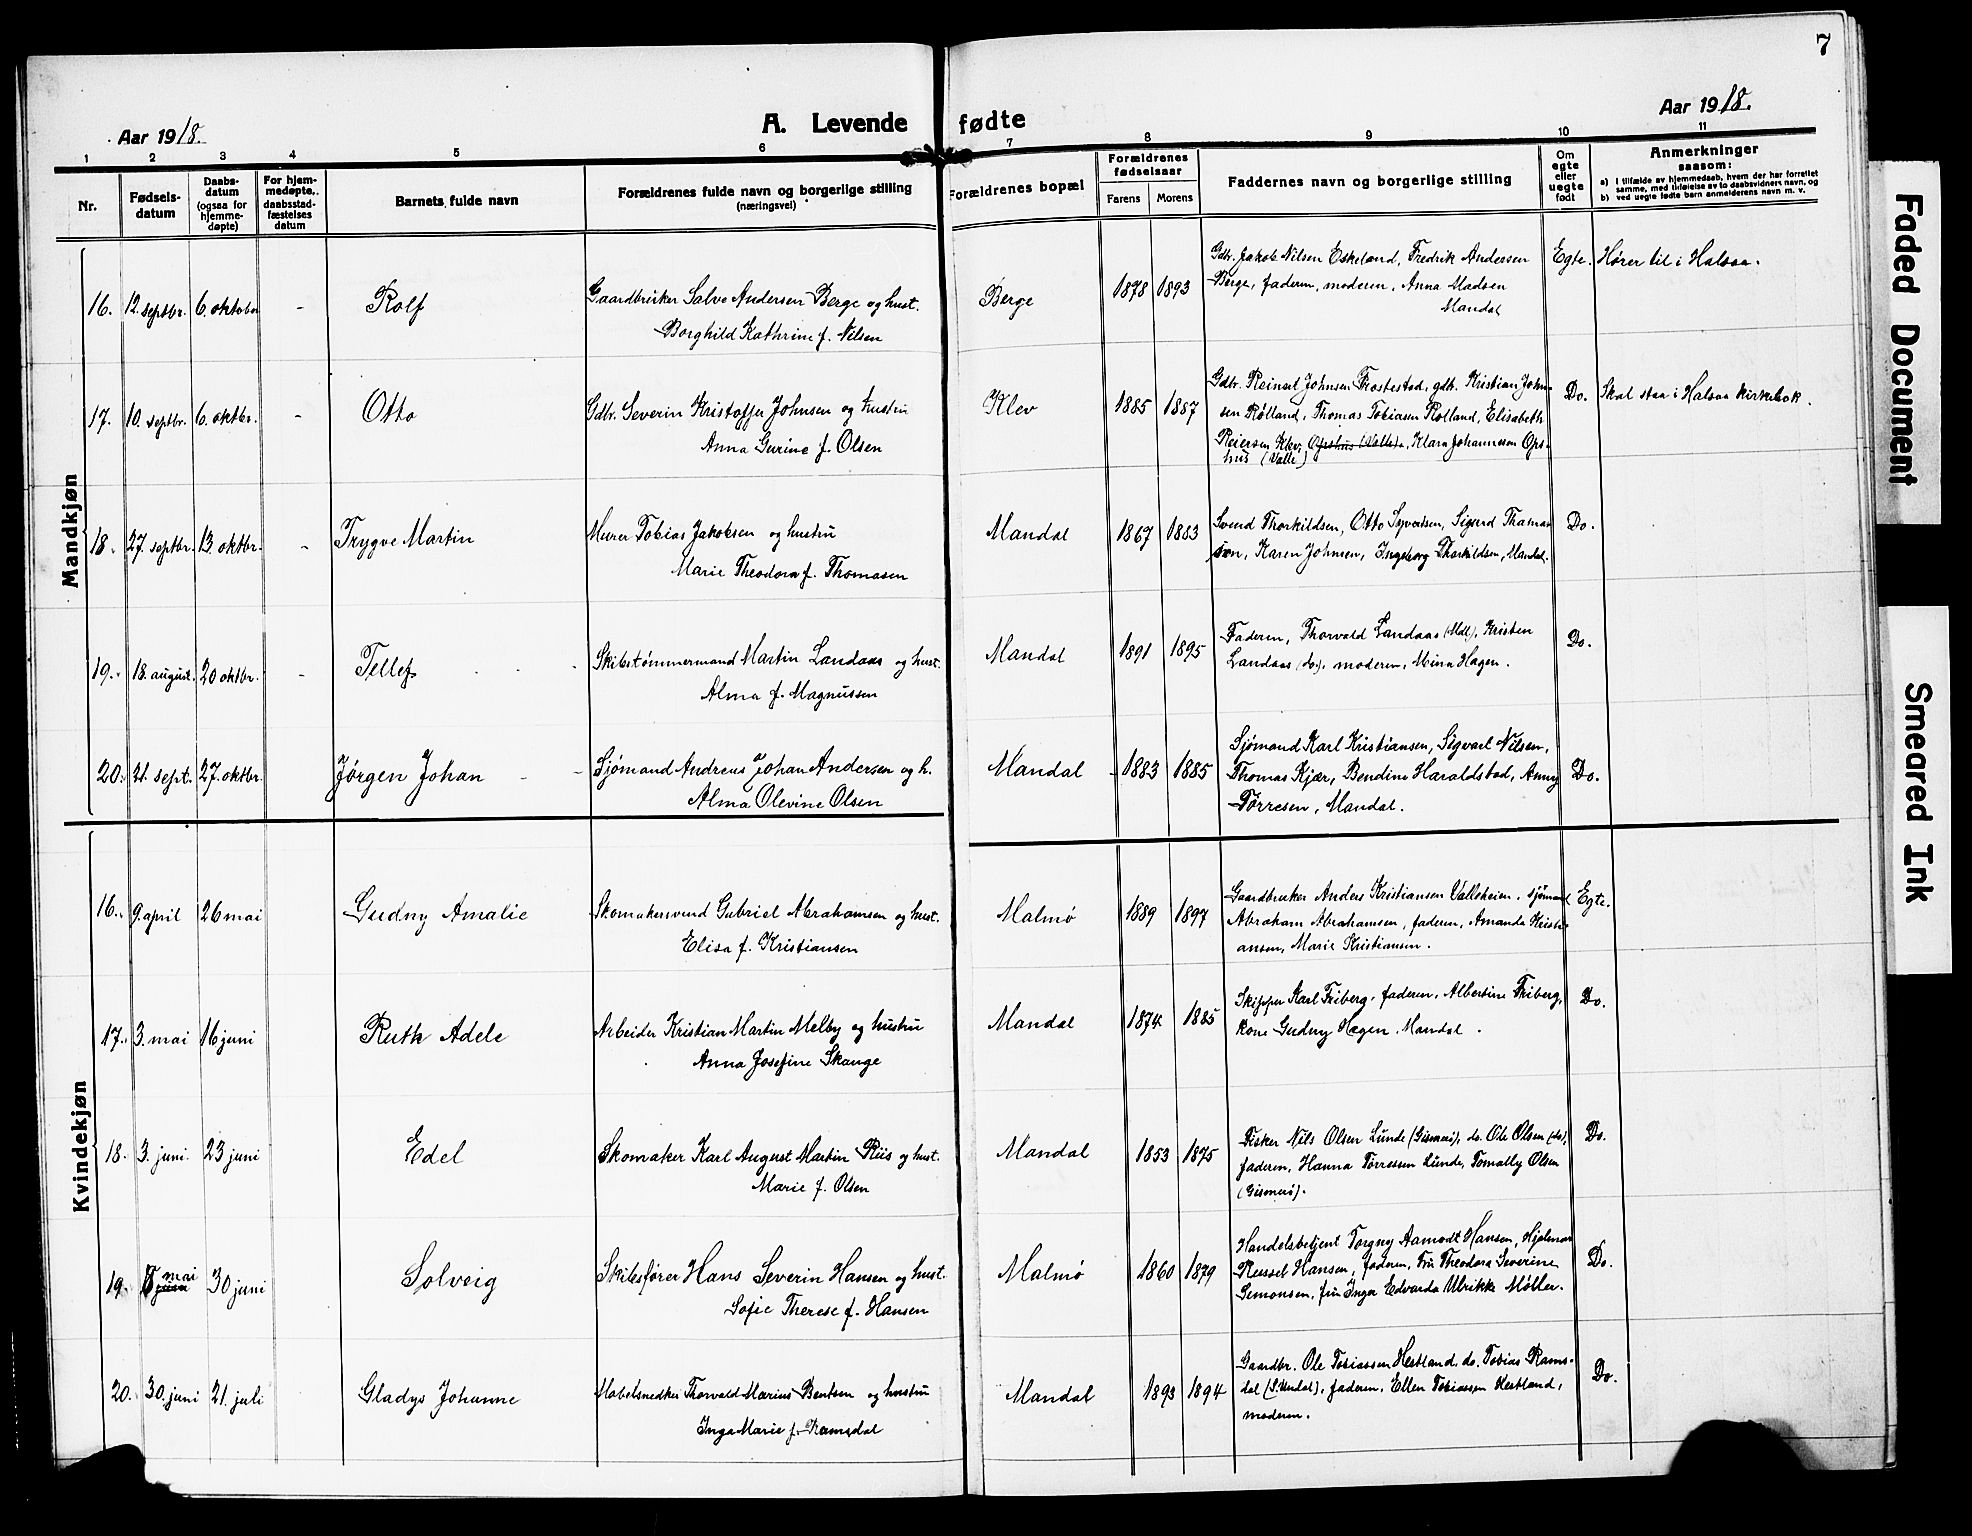 7
Aar 1918.
A. Levende fødte
Aar 1918.
1 2 3 4 5 6 7 8 9 10 11
Nr.
Fødsels-
datum
Daabs-
datum
(ogsaa for
hjemme-
døpte)
For hjem-
medøpte,
daabsstad-
fæstelses
datum
Barnets fulde navn
Forældrenes fulde navn og borgerlige stilling
(næringsvei)
Forældrenes bopæl
Forældrenes
fødselsaar
Farens Morens
Faddernes navn og borgerlige stilling
Om
egte
eller
uegte
født
Anmerkninger
saasom:
a) I tilfælde av hjemmedaab, hvem der har forrettet
samme, med tilføielse av to daabsvidners navn, og
b) ved uegte fødte barn anmelderens navn m. v.
Mandkjøn
16. 12. septbr. 6. oktober - Rolf
Gaardbruker Salve Andersen Berge og hust.
Borghild Kathrine f. Nilsen
Berge 1878 1893
Gdbr. Jakob Nilsen Eskeland, Fredrik Andersen
Berge, faderen, moderen, Anna Madsen
Mandal
Egte. Hører til i Halsaa.
17. 10. septbr. 6. oktbr. - Otto
Gdbr. Severin Kristoffer Johnsen og hustru
Anna Gurine f. Olsen
Klev 1885 1887
Gdbr. Reinert Johnsen Frostestad, gdb. Kristian John-
sen Rølland, Thomas Tobiasen Rølland, Elisabeth
Reiersen Klev, Øpshus (Valle), Klara Johannesen Øps-
hus (Valle)
Do. Skal staa i Halsaa kirkebok.
18. 27. septbr. 13. oktbr. - Trygve Martin
Murer Tobias Jakobsen og hustru
Marie Theodora f. Thomasen
Mandal 1867 1883
Svend Thorkildsen, Otto Syvertsen, Sigurd Thomas
sen, Karen Johnsen, Ingeborg Thorkildsen, Mandal.
Do.
19. 18. august. 20 oktbr. - Tellef
Skibstømmermand Martin Landaas og hust.
Alma f. Magnussen
Mandal 1891 1895
Faderen, Thorvald Landaas (Mdl), Kristen
Landaas (do), moderen, Mina Hagen.
Do.
20. 21. sept. 27. oktbr. Jørgen Johan
Sjømand Andreas Johan Andersen og h.
Alma Olevine Olsen
Mandal 1883 1885
Sjømand Karl Kristiansen, Sigvart Nilsen,
Thomas Kjær, Bendine Haraldstad, Anny
Tørresen, Mandal.
Do.
Kvindekjøn
16. 9. april 26 mai Gudny Amalie
Skomakersvend Gabriel Abrahamsen og hust.
Elisa f. Kristiansen
Malmø 1889 1897
Gaardbruker Anders Kristiansen Valleheien, sjømand
Abraham Abrahamsen, faderen, Amanda Kristi-
ansen, Marie Kristiansen.
Egte.
17. 3. mai 16 juni Ruth Adele
Arbeider Kristian Martin Melby og hustru
Anna Josefine Skauge
Mandal 1874 1885
Skipper Karl Friberg, faderen, Albertine Friberg,
kone Gudny Hagen, Mandal.
Do.
18. 3. juni 23 juni Edel
Skomaker Karl August Martin Riis og hust.
Marie f. Olsen
Mandal 1853 1875
Fisker Nils Olsen Lunde (Gismerø), do. Ole Olsen (do),
faderen, Hanna Tørressen Lunde, Tomally Olsen
(Gismerø).
Do.
19. mai juni 30 juni Solveig
Skibsfører Hans Severin Hansen og hust.
Sofie Therese f. Hansen
Malmø 1860 1879
Handelsbetjent Torgny Aamodt Hansen, Hjalmar
Russel Hansen, faderen, Fru Theodora Severine
Semonsen, fru Inga Edvarda Ulrikke Møller.
Do.
20. 30. juni 21. juli Gladys Johanne
Møbelsnedker Thorvald Marius Bentsen og hustru
Inga Marie f. Ramsdal
Mandal 1893 1894
Gaardbr. Ole Tobiassen Hestland, do. Tobias Rams-
dal (S. Undal), faderen, Ellen Tobiassen Hestland,
moderen.
Do.
Faded Document
Smeared Ink